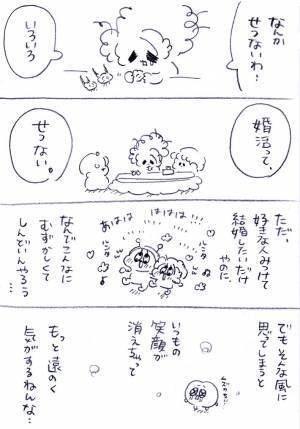 なんか
せつないわ…
いろいろ
婚活って、
せつない。
ただ、
好きな人みつけて
結婚したいだけ
やのに。
あはは
ははは!!
ルンタ
ルンタ
なんでこんなに
むずかしくて
しんどいんやろう…
でもそんな風に
思ってしまうと
いつもの
笑顔が
消えちゃって
もっと遠のく
気がするねんな…